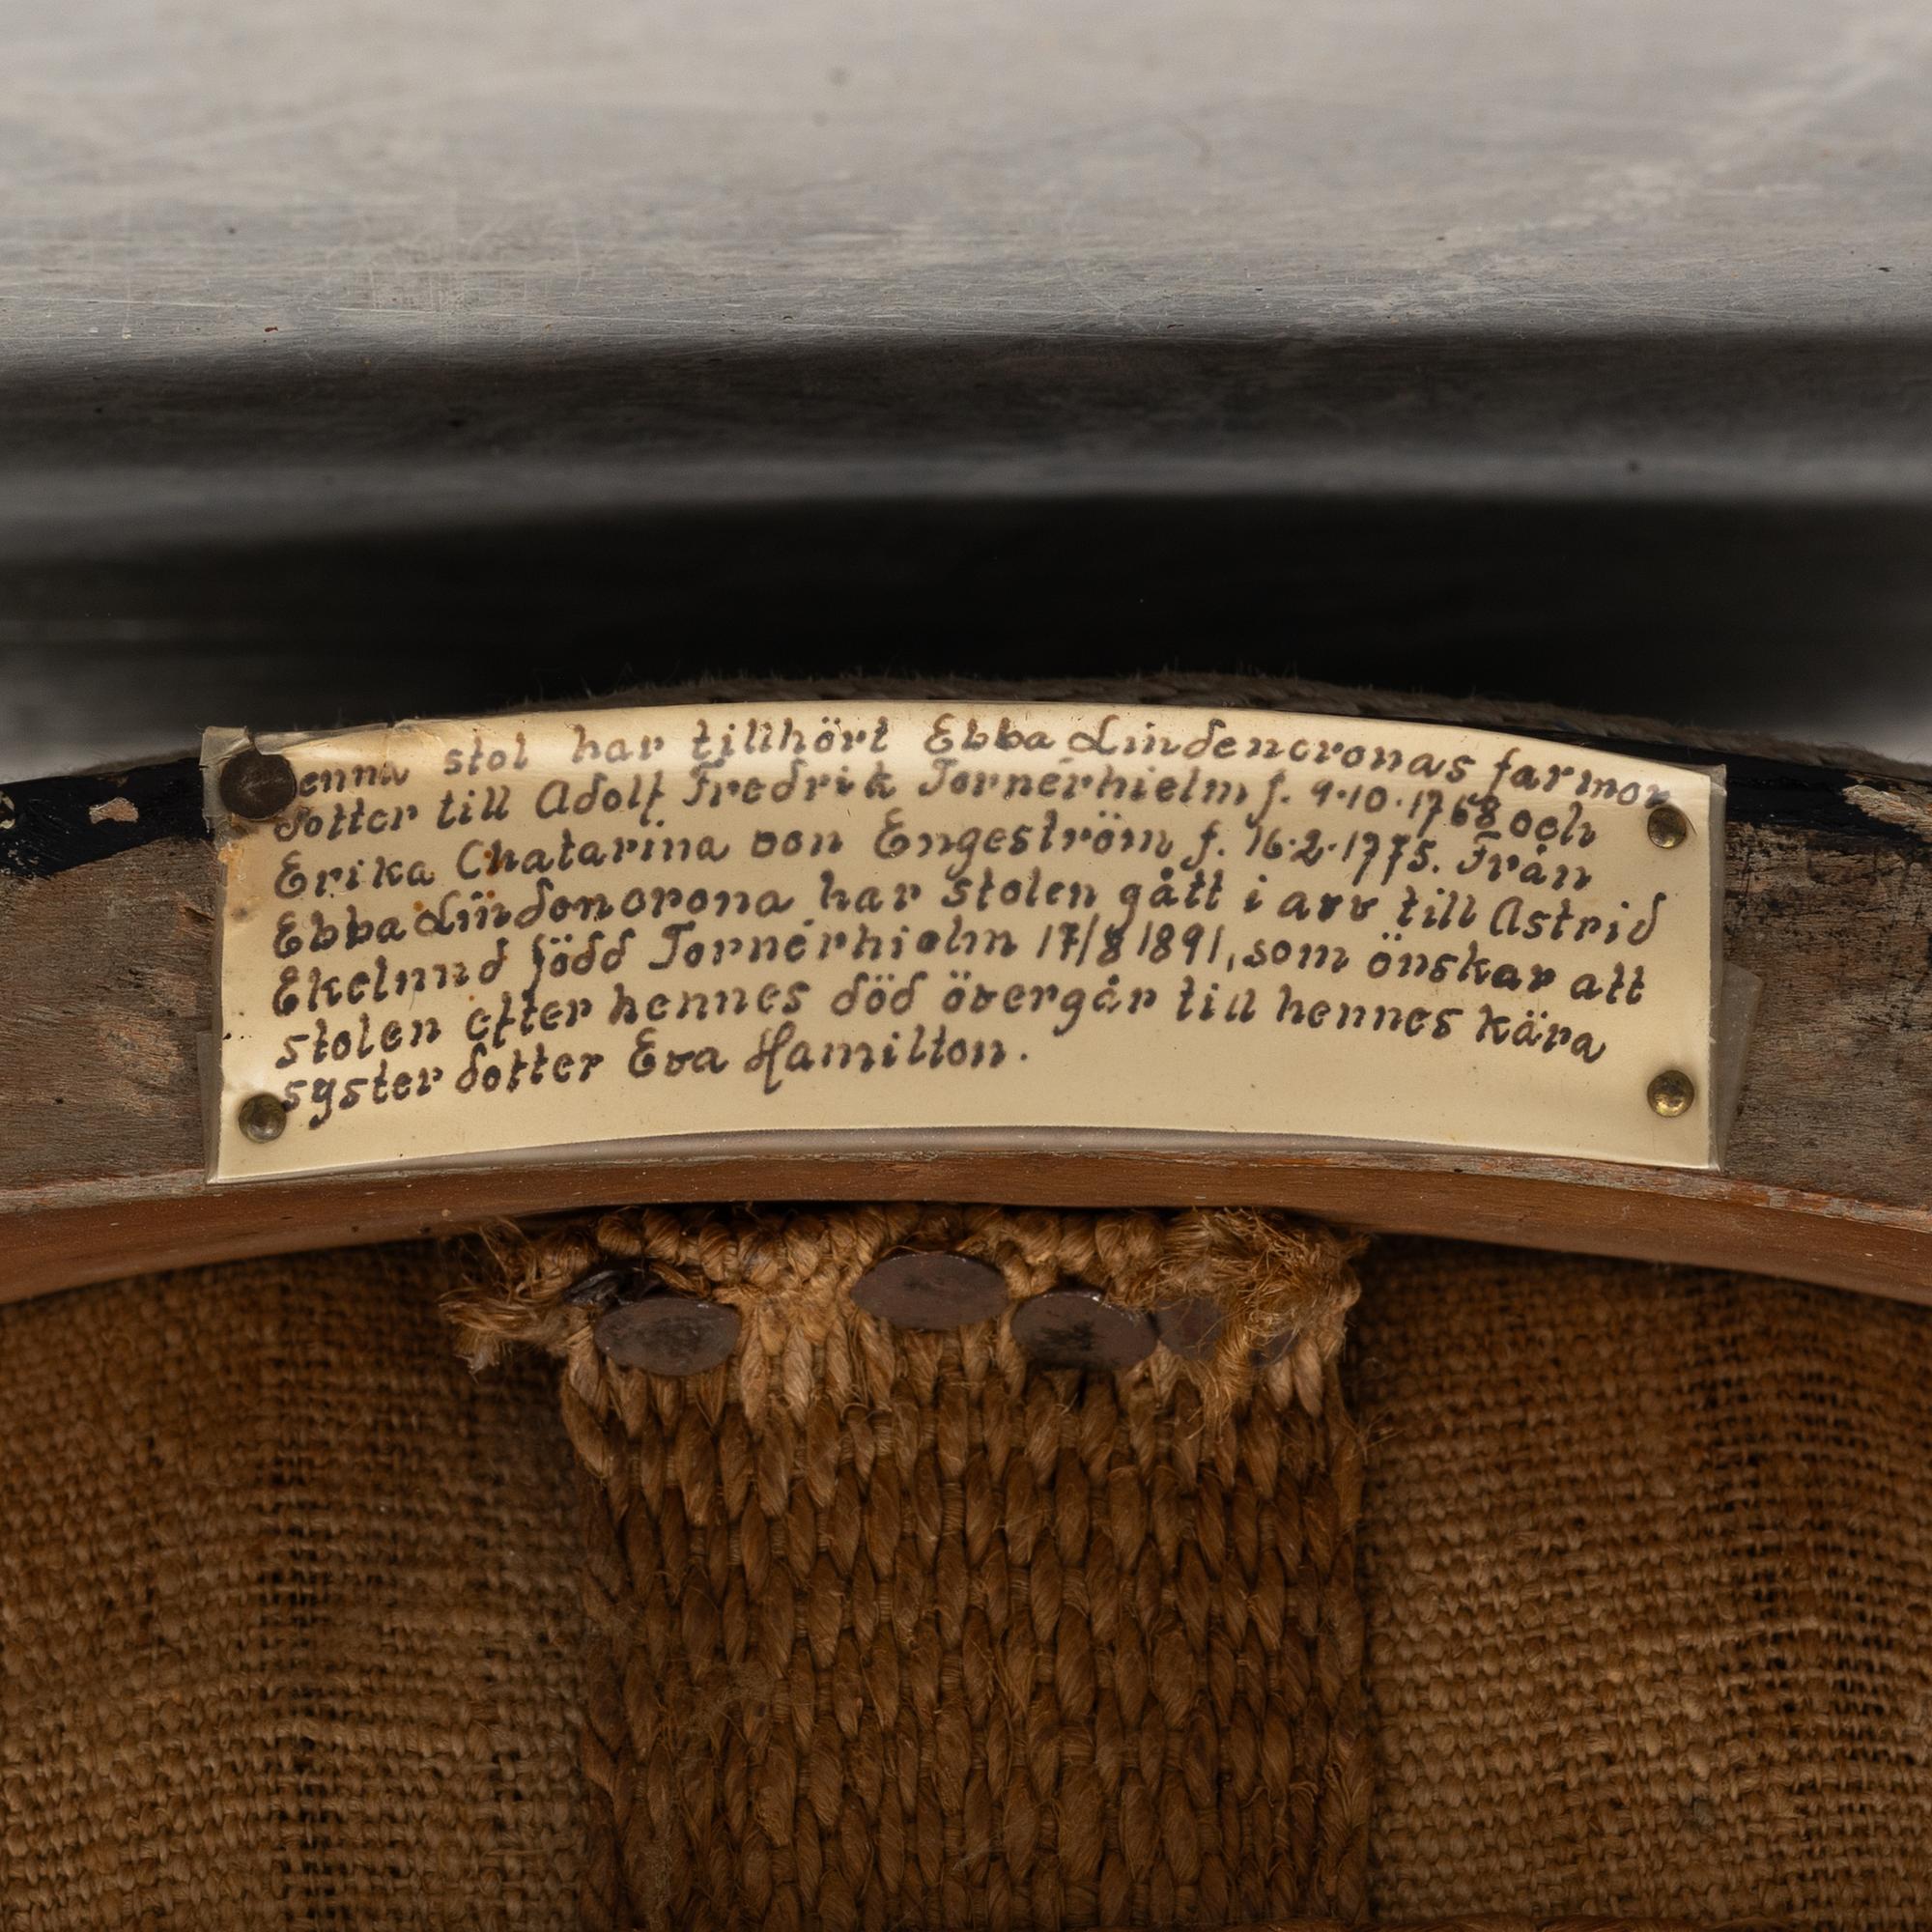 enna stol har tillhört Ebba Lindencronas farmor
dotter till Adolf Fredrik Tornérhielm f. 9·10·1768 och
Erika Chatarina von Engeström f. 16·2·1775. Från
Ebba Lindencrona har stolen gått i arv till Astrid
Ekelund född Tornérhielm 17/8 1891, som önskar att
stolen efter hennes död övergår till hennes kära
syster dotter Eva Hamilton.